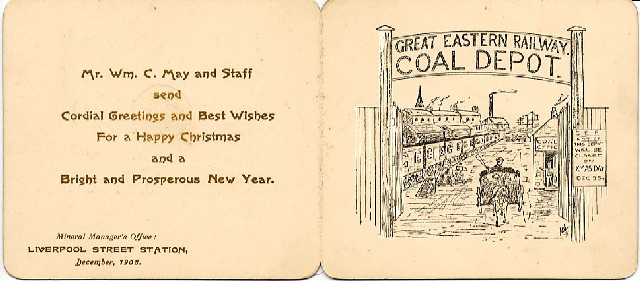 Mr. Wm. C. May and Staff
send
Cordial Greetings and Best Wishes
For a Happy Christmas
and a
Bright and Prosperous New Year.
Mineral Manager's Office:
LIVERPOOL STREET STATION,
December, 1908.
GREAT EASTERN RAILWAY.
COAL DEPOT.
COAL
OFFICE
THIS DEPOT
WILL BE
CLOSED
ON
X'MAS DAY
DEC 25